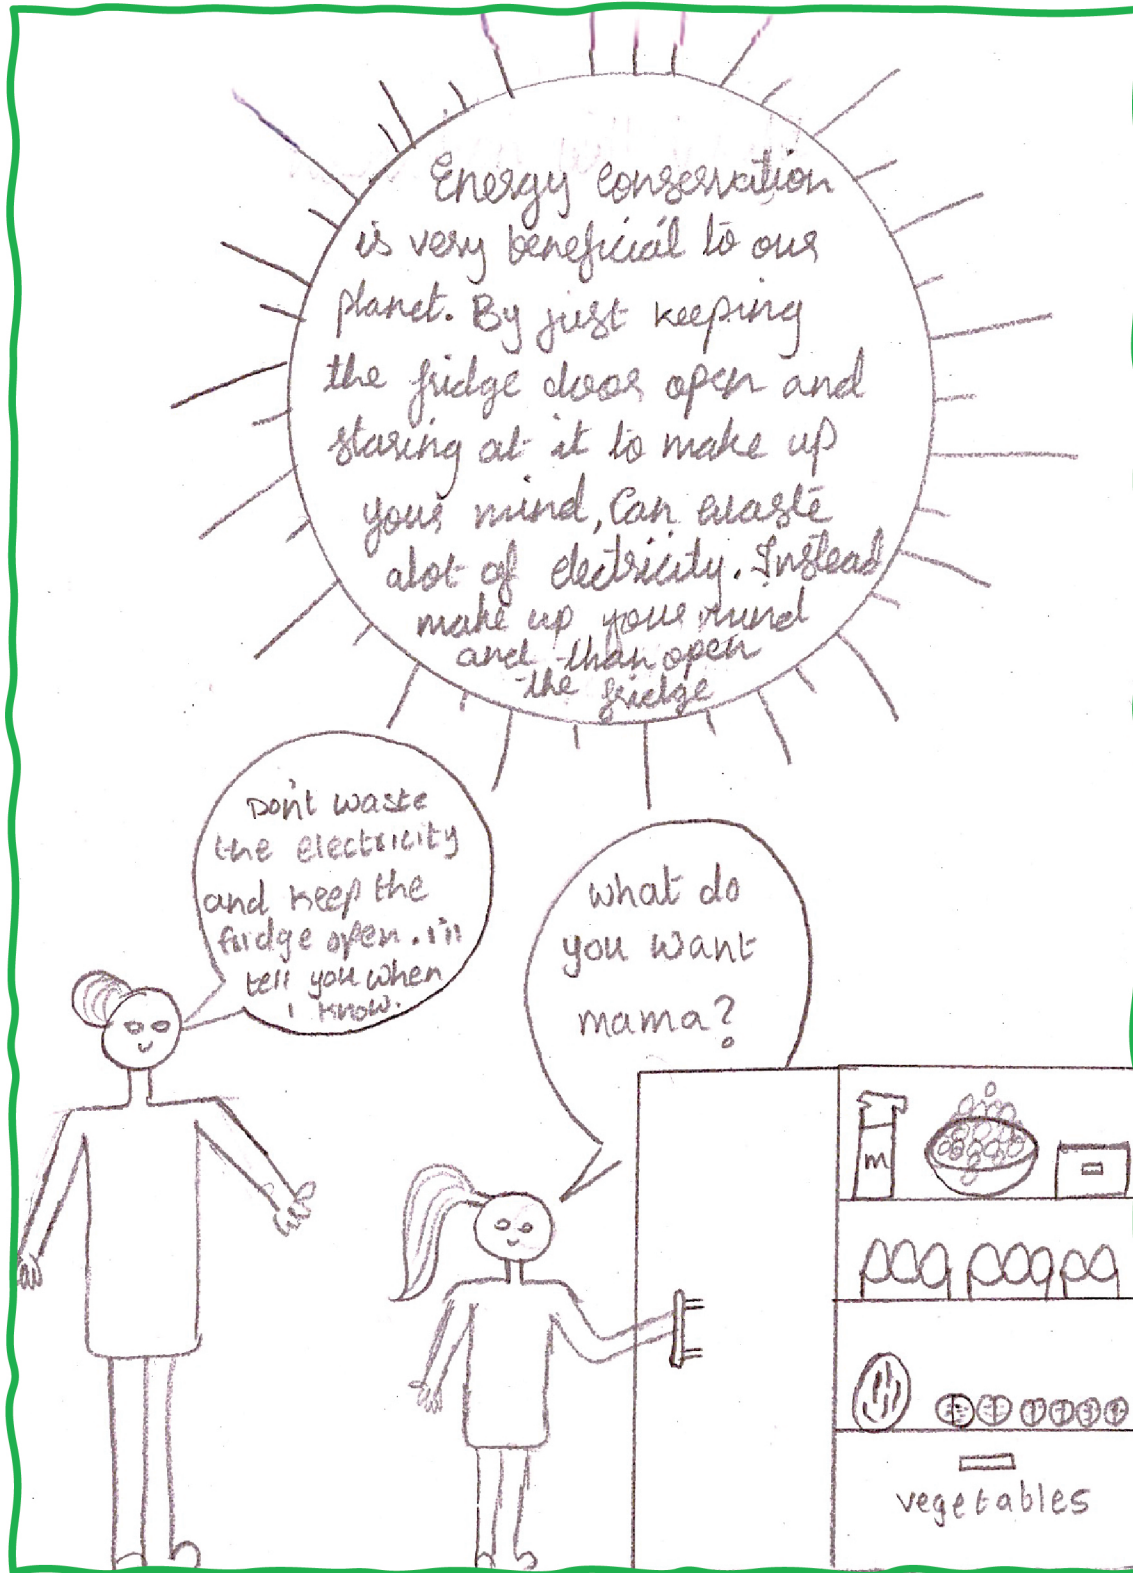 Energy conservation
is very beneficial to our
planet. By just keeping
the fridge door open and
staring at it to make up
your mind, Can waste
alot of electricity. Instead
make up your mind
and than open
the fridge
Don't waste
the electricity
and keep the
fridge open. I'll
tell you when
i know.
what do
you want
mama?
m
vegetables